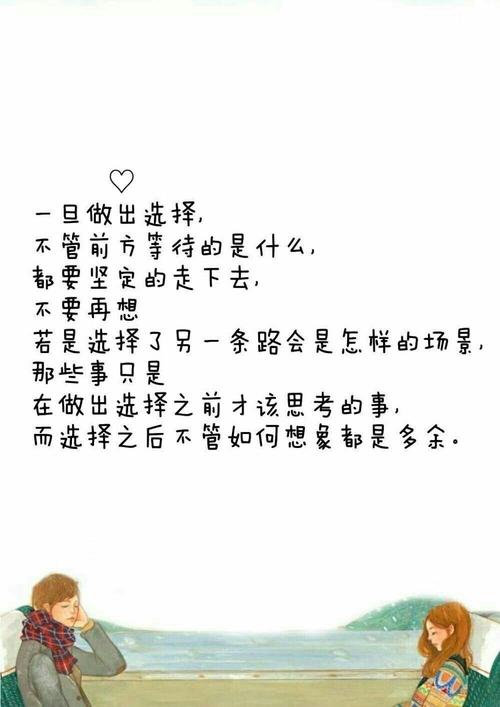 一旦做出选择,
不管前方等待的是什么,
都要坚定的走下去,
不要再想
若是选择了另一条路会是怎样的场景,
那些事只是
在做出选择之前才该思考的事,
而选择之后不管如何想象都是多余。